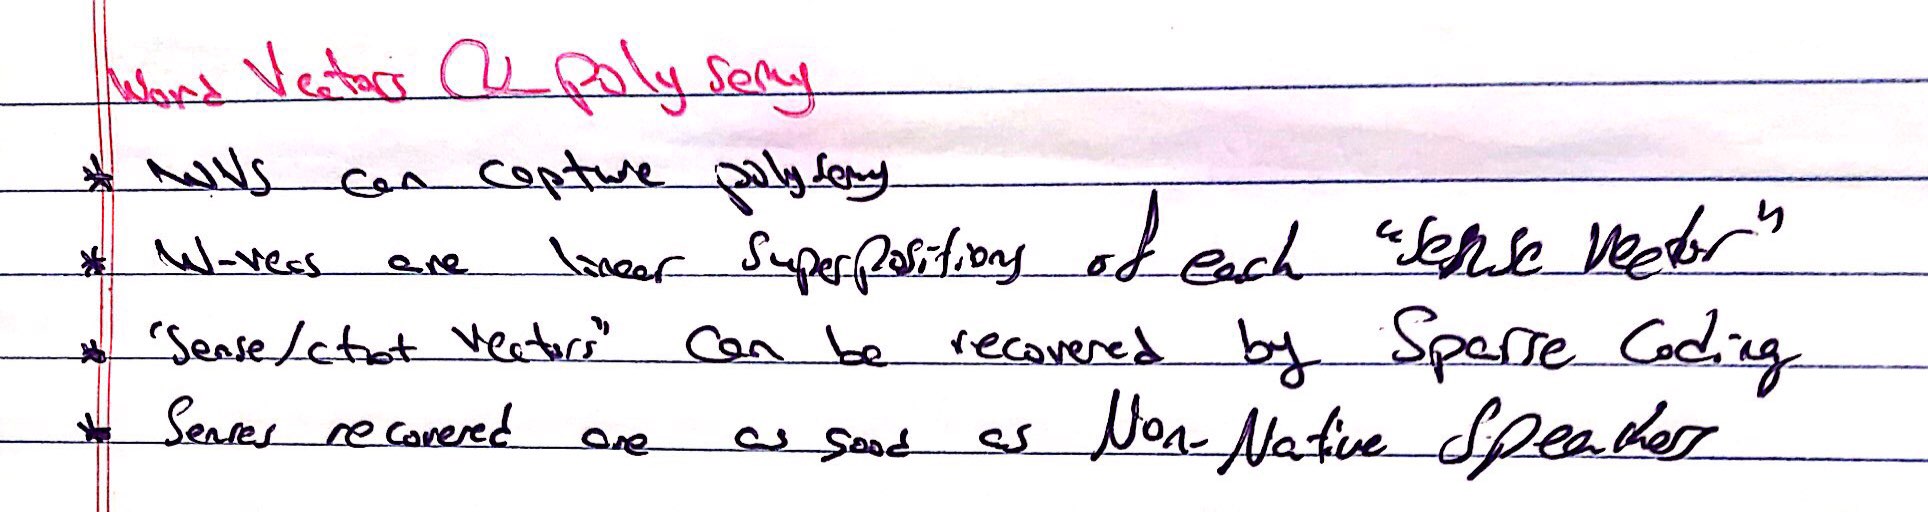 Word Vectors & polysemy
* WVs can capture polysemy
* W-vecs are linear superpositions of each "sense vector"
* "Sense/ctxt vectors" can be recovered by Sparse Coding
* Senses recovered are as good as Non-Native Speakers